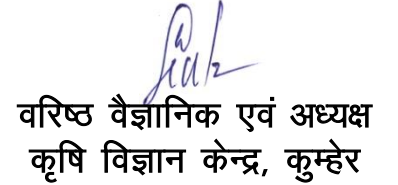 वरिष्ठ वैज्ञानिक एवं अध्यक्ष
कृषि विज्ञान केन्द्र, कुम्हेर